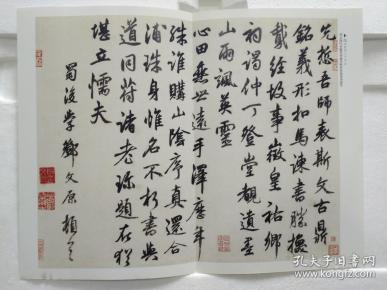 先哲吾師表斯文古鼎
銘義形扣馬諫書勝換
戴經故事徽皇祐鄉
初謁仲丁登堂觀遺墨
山雨颯英靈
心田無世遠手澤歷年
殊誰購山陰序真還合
浦珠身惟名不朽書與
道同符諸老珎題在猶
堪立懦夫
蜀後學鄧文原頓首
孔夫子旧书网